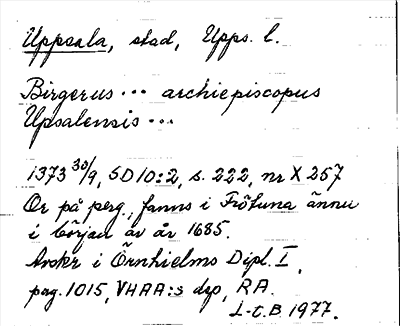 Uppsala, stad, Upps. l.
Birgerus ... archiepiscopus
Upsalensis ...
1373 30/9, SD 10:2, s. 222, nr X 257
Or på perg., fanns i Fröfuna ännu
i början av år 1685.
Avskr i Örnhielms Dipl. I,
pag. 1015, VHAA:s dep, RA.
L-C.B. 1977.